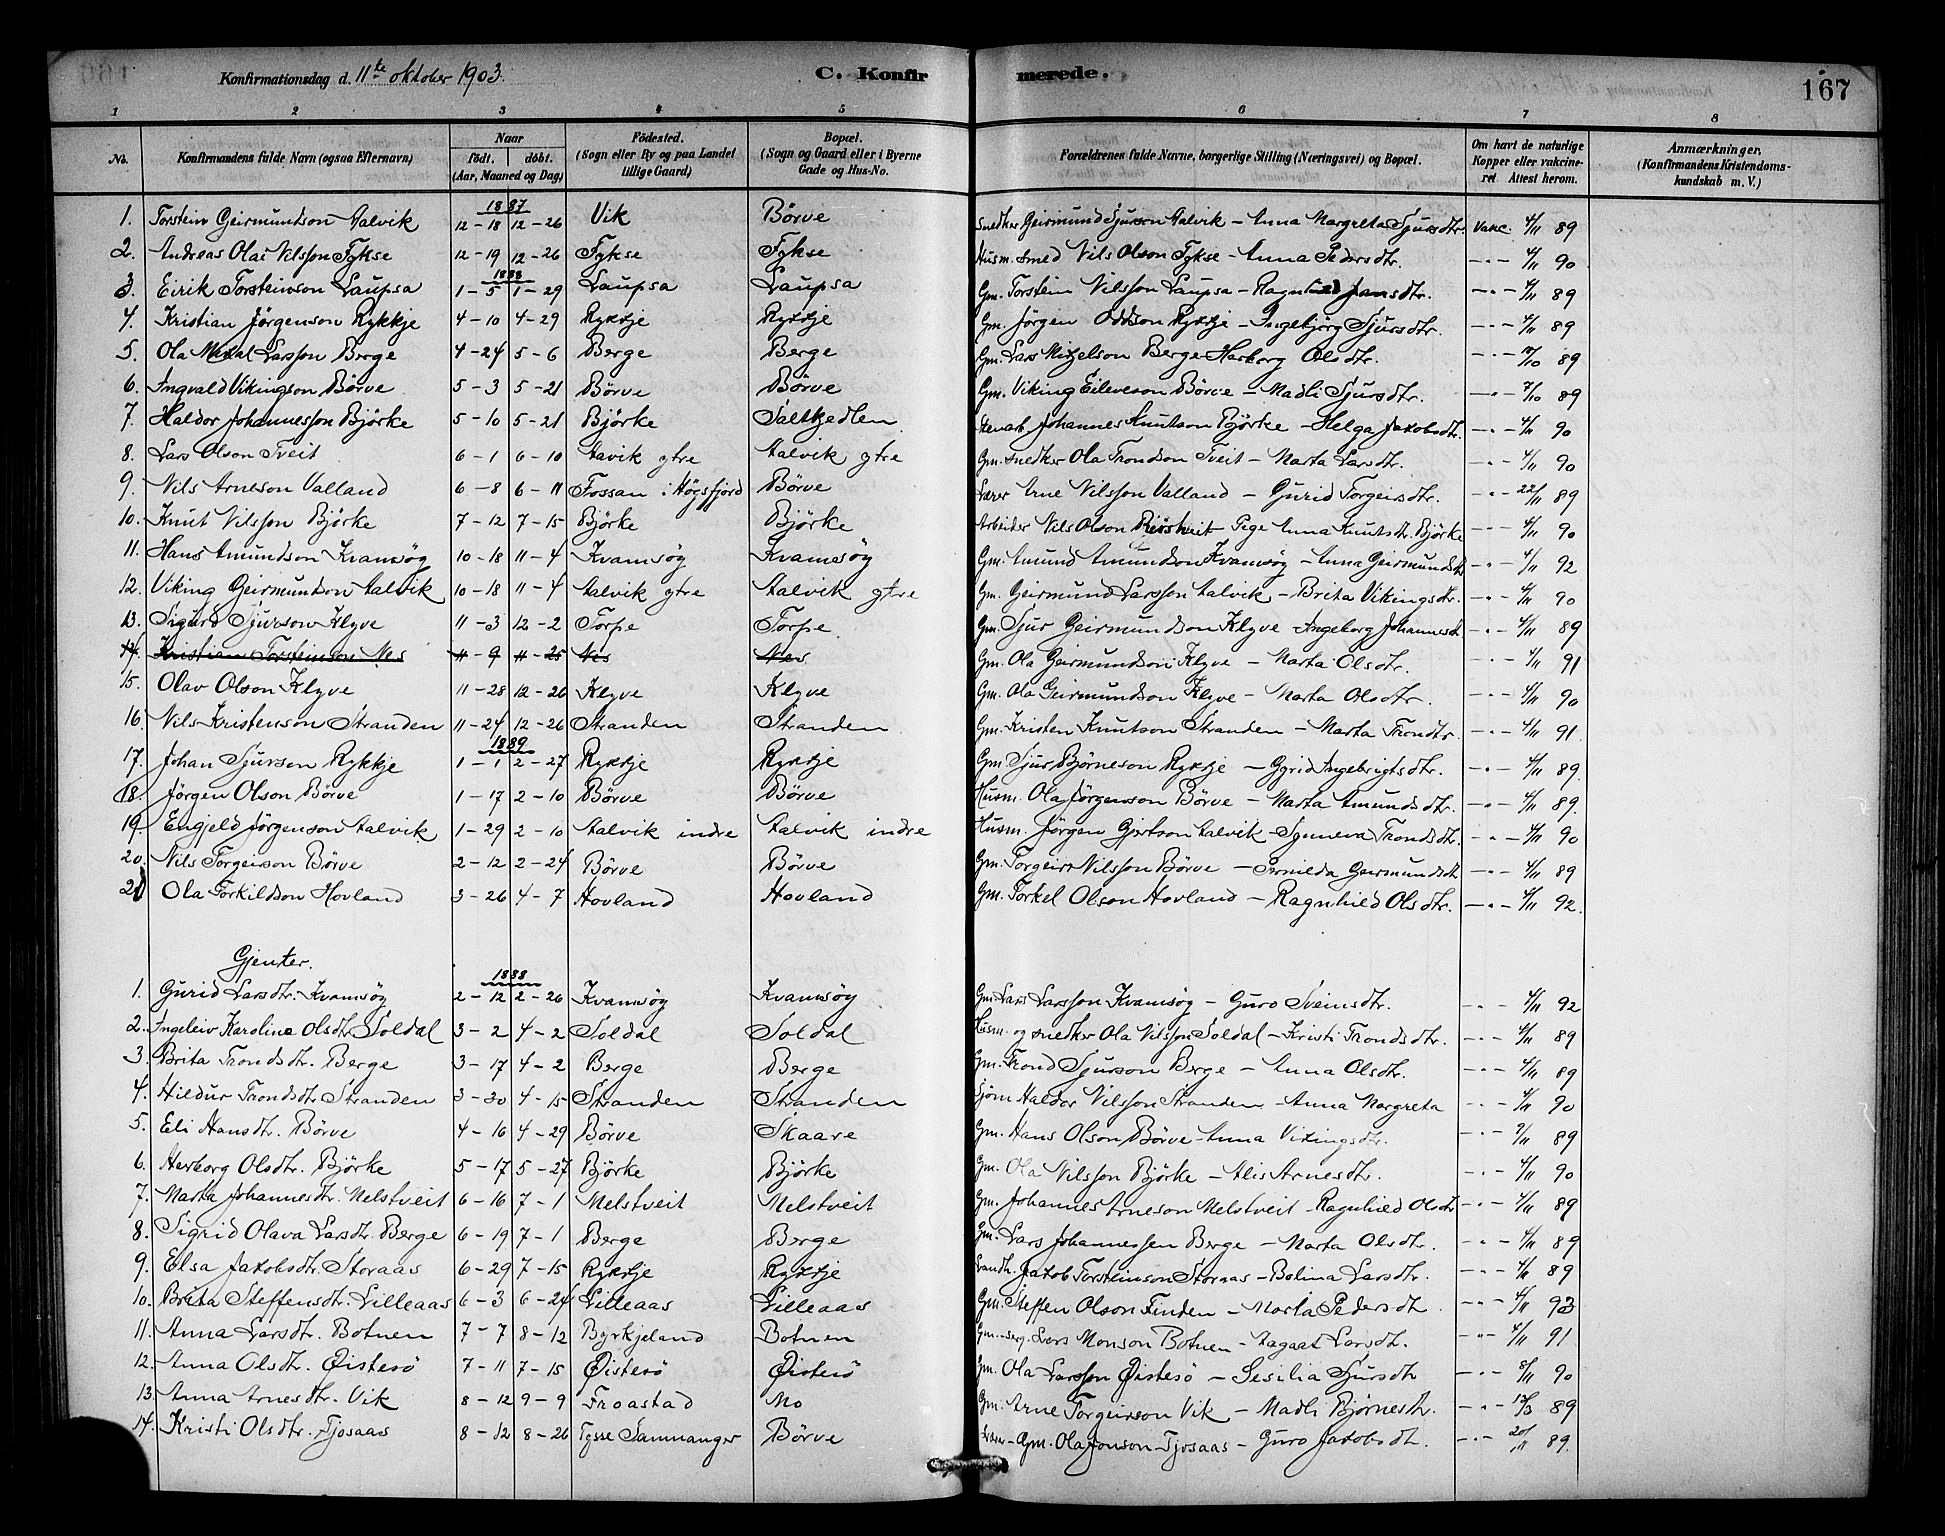 Konfirmationsdag d. 11te oktober 1903. C. Konfirmerede. 167
1 2 3 4 5 6 7 8
No. Konfirmandens fulde Navn (ogsaa Efternavn) Naar födt. döbt. (Aar, Maaned og Dag) Födested. (Sogn eller By og paa Landet tillige Gaard) Bopæl. (Sogn og Gaard eller i Byerne Gade og Hus-No. Forældrenes fulde Navne, borgerlige Stilling (Næringsvei) og Bopæl. Om havt de naturlige Kopper eller vakcineret. Attest herom. Anmærkninger. (Konfirmandens Kristendomskundskab m. V.)
1887
1. Torstein Geirmundson Aalvik 12-18 12-26 Vik Börve Snedker Geirmund Sjurson Aalvik - Anna Margreta Sjursdtr. Vakc. 4/11 89
2. Andreas Olai Nilsson Fykse 12-19 12-26 Fykse Fykse Husm. smed Nils Olson Fykse - Anna Pedersdtr. -"- 4/11 90
1888
3. Eirik Torsteinson Laupsa 1-5 1-29 Laupsa Laupsa Gm. Torstein Nilsson Laupsa - Jansdtr. -"- 4/11 89
4. Kristian Jörgenson Rykkje 4-10 4-29 Rykkje Rykkje Gm. Jörgen Oddson Rykkje - Ingebjörg Sjursdtr. -"- 4/11 89
5. Ola Larsson Berge 4-24 5-6 Berge Berge Gm. Lars Berge Herborg Olsdtr. -"- 89
6. Ingvald Vikingson Börve 5-3 5-21 Börve Börve Gm. Viking Eileveson Börve - Madli Sjursdtr. -"- 89
7. Haldor Johannesson Björke 5-10 5-21 Björke Saltkjedlen Johannes Knutson Björke - Helga Jakobsdtr. -"- 4/11 90
8. Lars Olson Tveit 6-1 6-10 Aavik ytre Aalvik ytre Gm. snedker Ola Trondson Tveit - Marta Larsdtr. -"- 4/11 90
9. Nils Arneson Valland 6-8 6-11 Fossan i Högsfjord Börve Lærer Arne Nilsson Valland - Gurid Torgeirsdtr. -"- 22/11 89
10. Knut Nilsson Björke 7-12 7-15 Björke Björke Arbeider Nils Olson Pige Anna Knutsdtr. Björke -"- 4/11 90
11. Hans Amundson Kvamsöy 10-18 11-4 Kvamsöy Kvamsöy Gm. Amund Amundson Kvamsöy - Anna Geirmundsdtr -"- 4/11 92
12. Viking Geirmundson Aalvik 10-18 11-4 Aalvik ytre Aalvik ytre Gm. Geirmund Larsson Aalvik - Brita Vikingsdtr. -"- 4/11 90
13. Sigurd Sjurson Klyve 11-3 12-2 Torpe Torpe Gm. Sjur Geirmundson Klyve - Ingeborg Johannesdt -"- 4/11 89
14. Kristian Torsteinson Nes 11-9 11-25 Nes Nes Gm. Ola Geirmundson Klyve - Marta Olsdtr. -"- 4/11 91
15. Olav Olson Klyve 11-28 12-26 Klyve Klyve Gm. Ola Geirmundson Klyve - Marta Olsdtr. -"- 4/11 90
16. Nils Kristenson Stranden 11-24 12-26 Stranden Stranden Gm. Kristen Knutson Stranden - Marta Trondtr. -"- 4/11 91
1889
17. Johan Sjurson Rykkje 1-1 2-27 Rykkje Rykkje Gm Sjur Björneson Rykkje - Gyrid Ingebrigtsdtr. -"- 4/11 89.
18. Jörgen Olson Börve 1-17 2-10 Börve Börve Husm. Ola Jörgenson Börve - Marta Amundsdtr. -"- 4/11 89.
19. Engjeld Jörgenson Aalvik 1-29 2-10 Aalvik indre Aalvik indre Husm. Jörgen Gjertson Aalvik - Synneva Trondsdtr. -"- 4/11 90
20. Nils Torgeirson Börve 2-12 2-24 Börve Börve Gm. Torgeir Nilsson Börve - Geirmundsdt -"- 4/11 89
21 Ola Torkildson Hovland 3-26 4-7 Hovland Hovland Gm. Torkel Olson Hovland - Ragnhild Olsdtr. -"- 4/11 92.
Gjenter.
1888
1. Gurid Larsdtr. Kvamsöy 2-12 2-26 Kvamsöy Kvamsöy Gm. Lars Larsson Kvamsöy - Guro Sveinsdtr. -"- 4/11 92
2. Ingeleiv Karoline Olsdtr Soldal 3-2 4-2 Soldal Soldal Husm. og snedker Ola Nilsson Soldal - Kristi Trondsdtr. -"- 4/11 89
3. Brita Trondsdtr. Berge 3-17 4-2 Berge Berge Gm. Trond Sjurson Berge - Anna Olsdtr. -"- 4/11 89
4. Hildur Trondsdtr Stranden 3-30 4-15 Stranden Stranden Haldor Nilsson Stranden - Anna Margreta -"- 4/11 90
5. Eli Hansdtr. Börve 4-16 4-29 Börve Skaare Gm. Hans Olson Börve - Anna Vikingsdtr. -"- 9/11 89
6. Herborg Olsdtr. Björke 5-17 5-27 Björke Björke Gm. Ola Nilsson Björke - Alis Arnesdtr. -"- 4/11 90
7. Marta Johannesdtr. Melstveit 6-16 7-1 Melstveit Melstveit Gm. Johannes Arneson Melstveit - Ragnhild Olsdtr -"- 4/11 89
8. Sigrid Olava Larsdtr. Berge 6-19 7-1 Berge Berge Gm. Lars Johannessen Berge - Marta Olsdtr. -"- 4/11 89
9. Elsa Jakobsdtr. Storaas 6-29 7-15 Rykkje Rykkje Landh. Jakob Torsteinson Storaas - Bolina Larsdtr. -"- 4/11 89
10. Brita Steffensdtr. Lilleaas 6-3 6-24 Lilleaas Lilleaas Gm. Steffen Olson Finden - Marta Pedersdtr -"- 4/11 93
11. Anna Larsdtr. Botnen 7-7 8-12 Byrkjeland Botnen Gm. Lars Monson Botnen - Aagaat Larsdtr. -"- 4/11 91
12. Anna Olsdtr. Öistesö 7-11 7-15 Öistesö Öistesö Gm. Ola Larsson Öistesö - Sesilia Sjursdtr -"- 8/11 90
13. Anna Arnesdtr. Vik 8-12 9-9 Froastad Mo Gm. Arne Torgeirson Vik - Madli Björnesdtr. -"- 89
14. Kristi Olsdtr. Tjosaas 8-12 8-26 Tysse Samnanger Börve Gm. Ola Jonson Tjosaas - Guro Jakobsdtr. -"- 20/11 89.